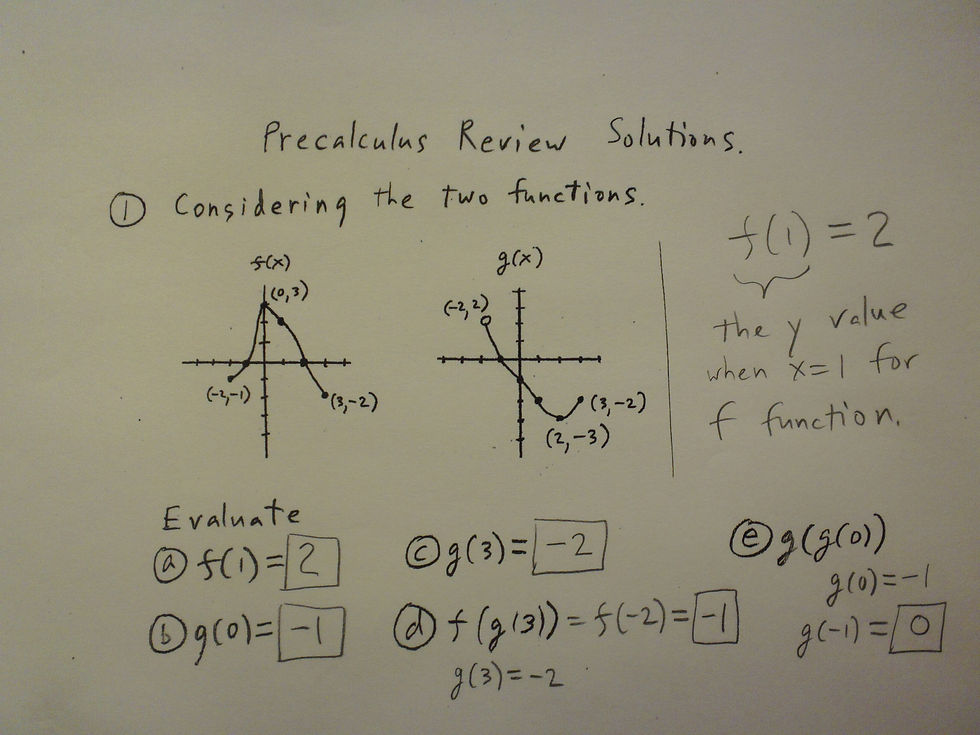 Precalculus Review Solutions.
① Considering the two functions.
f(x)
(0,3)
(-2,-1)
(3,-2)
g(x)
(-2,2)
(3,-2)
(2,-3)
f(1) = 2
the y value
when x=1 for
f function.
Evaluate
ⓐ f(1) = 2
ⓑ g(0) = -1
ⓒ g(3) = -2
ⓓ f(g(3)) = f(-2) = -1
g(3) = -2
ⓔ g(g(0))
g(0) = -1
g(-1) = 0